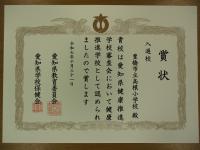 賞状
入選校
豊橋市立高根小学校 殿
貴校は愛知県健康推進
学校審査会において健康
推進学校として認められ
ましたので賞します
愛知県教育委員会
愛知県学校保健会